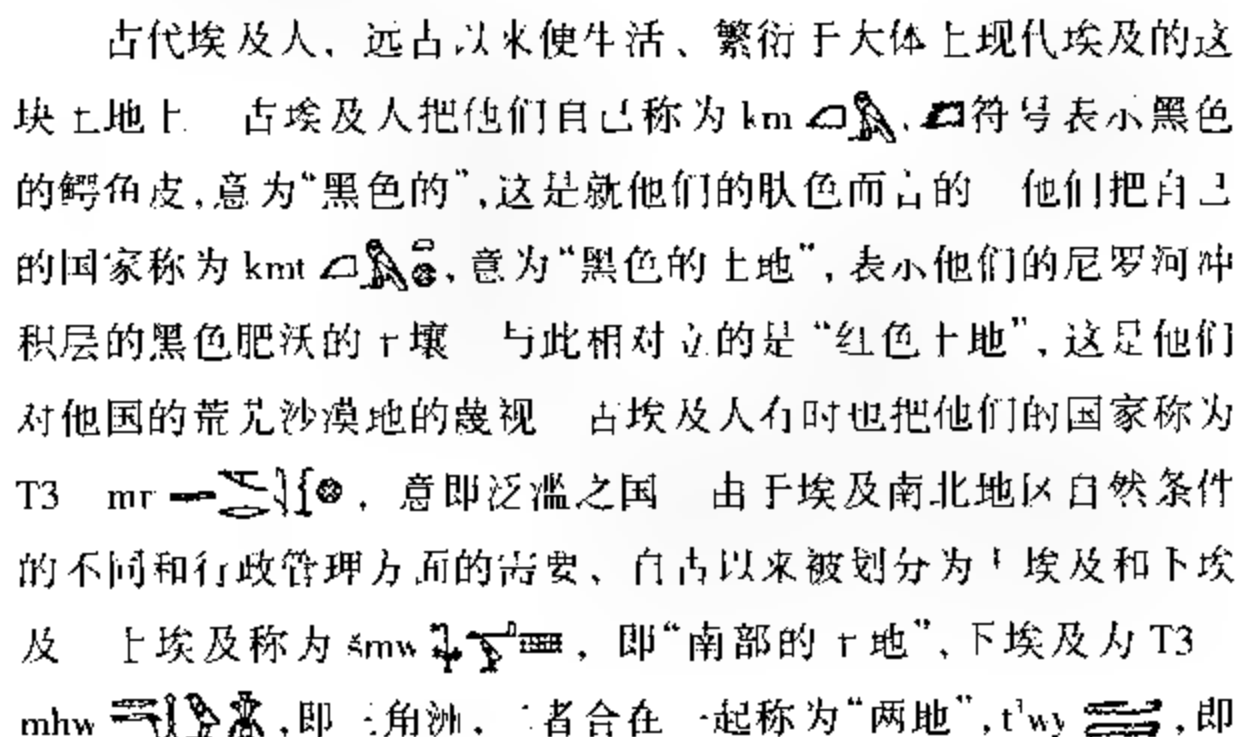 古代埃及人，远古以来便生活、繁衍于大体上现代埃及的这
块土地上 古埃及人把他们自己称为 km 符号表示黑色
的鳄鱼皮,意为“黑色的”,这是就他们的肤色而言的 他们把自己
的国家称为 kmt ，意为“黑色的土地”，表示他们的尼罗河冲
积层的黑色肥沃的土壤 与此相对立的是“红色土地”，这是他们
对他国的荒芜沙漠地的蔑视 古埃及人有时也把他们的国家称为
T3 mr ，意即泛滥之国 由于埃及南北地区自然条件
的不同和行政管理方面的需要、自古以来被划分为上埃及和下埃
及 上埃及称为 šmw ，即“南部的土地”、下埃及为 T3
mhw ,即三角洲．二者合在一起称为“两地”,t³wy ,即